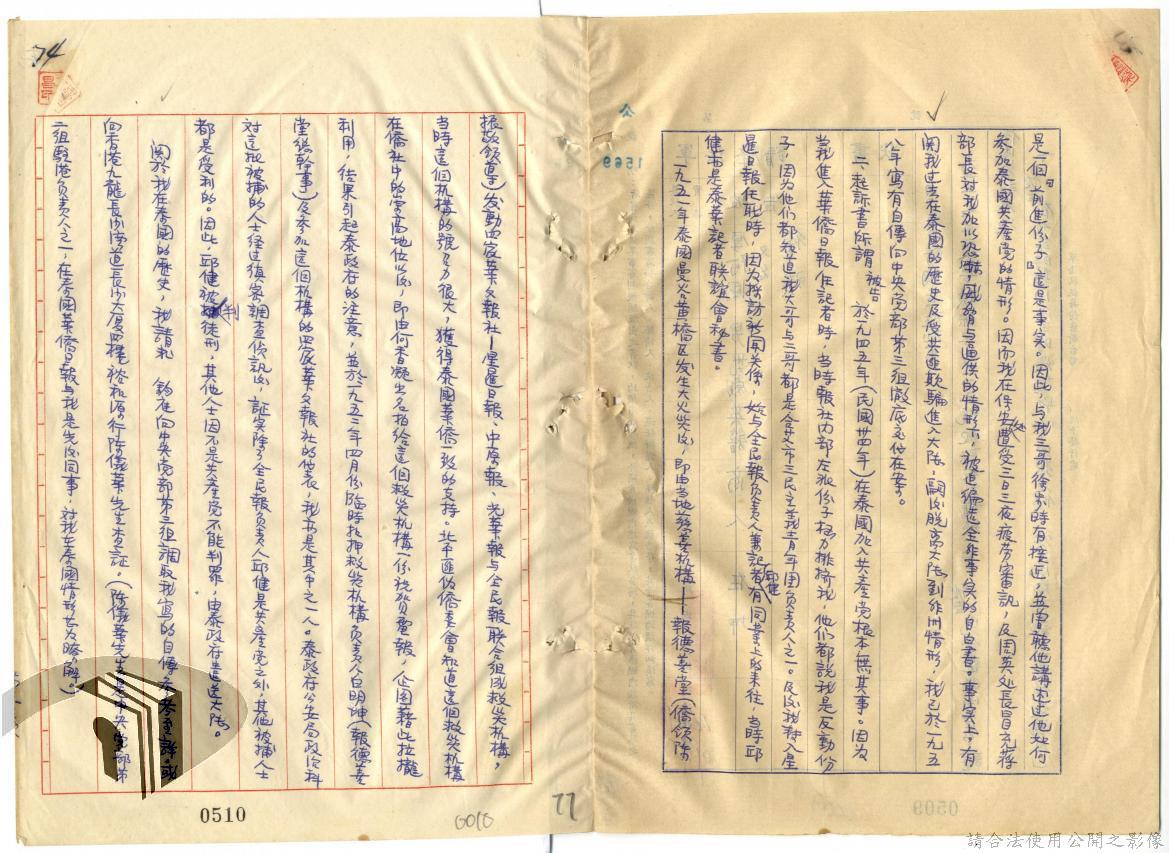 是一個『前進份子』這是事实。因此,与我三哥徐步時有接近,並曾聽他講述过他如何
参加泰國共產党的情形。因而我在保安處遭受三日三夜疲劳審訊,及周英処長冒充蔣
部長对我加以恐嚇,与逼供的情形下,被迫編造全非事实的自白書。事实上,有
関我过去在泰國的歷史及受共匪欺騙進入大陆,嗣後脱离大陆到非洲情形,我已於一九五
八年寫有自傳向中央党部第三組徹底交代在案。
二、起訴書所謂被告 於一九四五年(民國卅四年)在泰國加入共產党根本無其事。因为
當我進入華僑日報任記者時,当時報社内部左派份子極力排擠我,他們都説我是反動份
子,因为他们都知道我大哥与二哥都是合艾市三民主義青年团負責人之一。及後我轉入星
暹日報任職時,因为採訪新聞关係,始与全民報負責人兼記者邱健有同業上的来往,当時邱
健亦是泰華記者联誼會秘書。
一九五一年泰國曼谷黃橋区发生大火災後,即由当地慈善机構——報德善堂(僑領陈
振敬領導)发動四家華文報社—星暹日報、中原報、光華報与全民報联合組成救災机構,
当時這個机構的號召力很大,獲得泰國華僑一致的支持。北平匪偽僑委會知道這個救災机構
在僑社中的崇高地位後,即由何香凝出名拍給這個救災机構一份稅賀電報,企圖藉此拉攏
利用,結果引起泰政府的注意,並於一九五二年四月份臨時扣押救災机構負責人白明坤(報德善
堂總幹事)及参加這個机構的四家華文報社的代表,我亦是其中之一人。泰政府公安局政治科
对這批被捕的人士经过縝密調查偵訊後,証实除了全民報負責人邱健是共產党之外,其他被捕人士
都是受利的。因此邱健被判徒刑,其他人士因不是共產党不能判罪,由泰政府遣送大陆。
関於我在泰國的歷史,我請求 鈞座向中央党部第三組調取我寫的自傳来参考詳,或
向香港九龍長沙湾道長沙大厦四楼裕和源行陈儀華先生查証。(陈儀華先生是中央党部第
二組駐港負責人之一,在泰國華僑日報与我是先後同事,对我在泰國情形甚为瞭解。)
74
1569
0509
0510
0010
77
請合法使用公開之影像